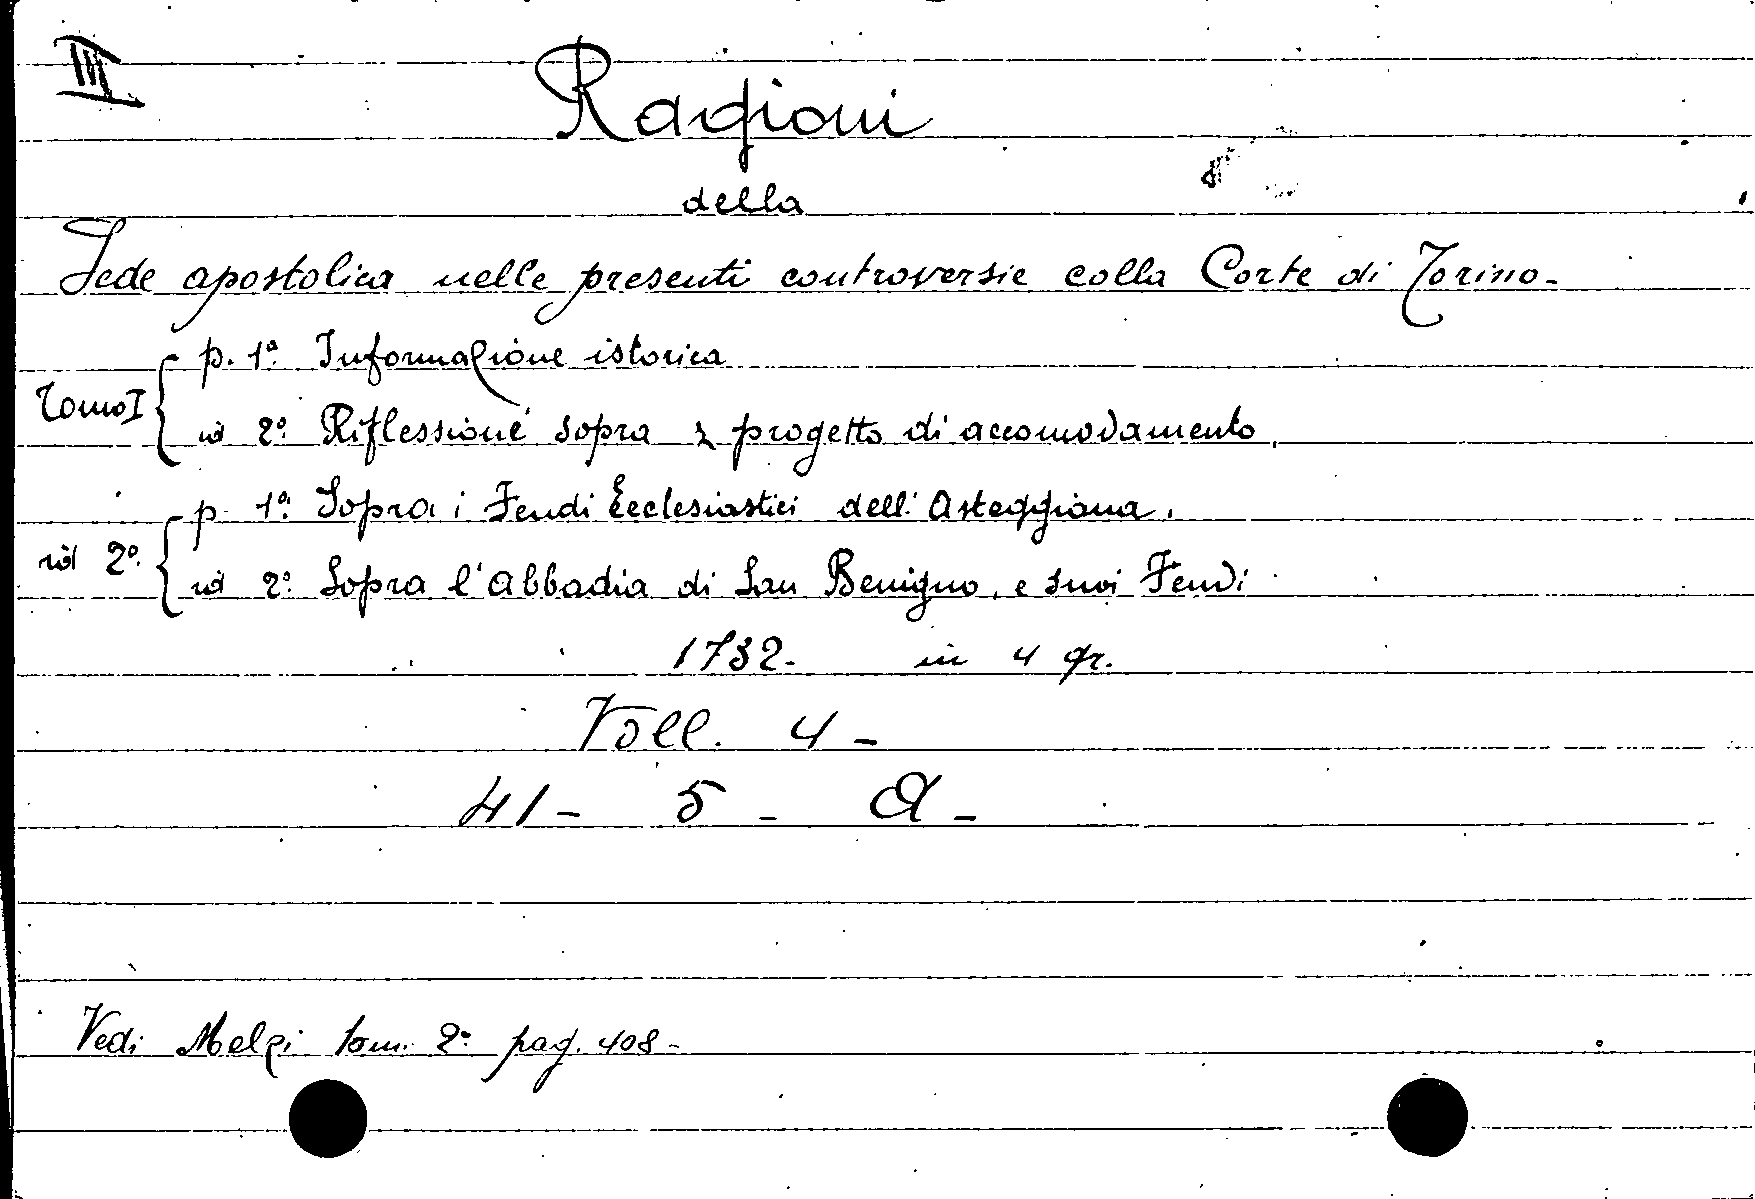 III
Ragioni
della
Sede apostolica nelle presenti controversie colla Corte di Torino-
p. 1ª. Informazione istorica
Tomo I
id 2ª. Riflessione sopra progetto di accomodamento.
p. 1ª. Sopra i Feudi Ecclesiastici dell'Asteggiana.
id 2º.
id 2ª. Sopra l'Abbadia di San Benigno, e suoi Feudi
1732. in 4 gr.
Voll. 4-
41- 5 - A-
Vedi Melzi tom. 2º pag. 408-